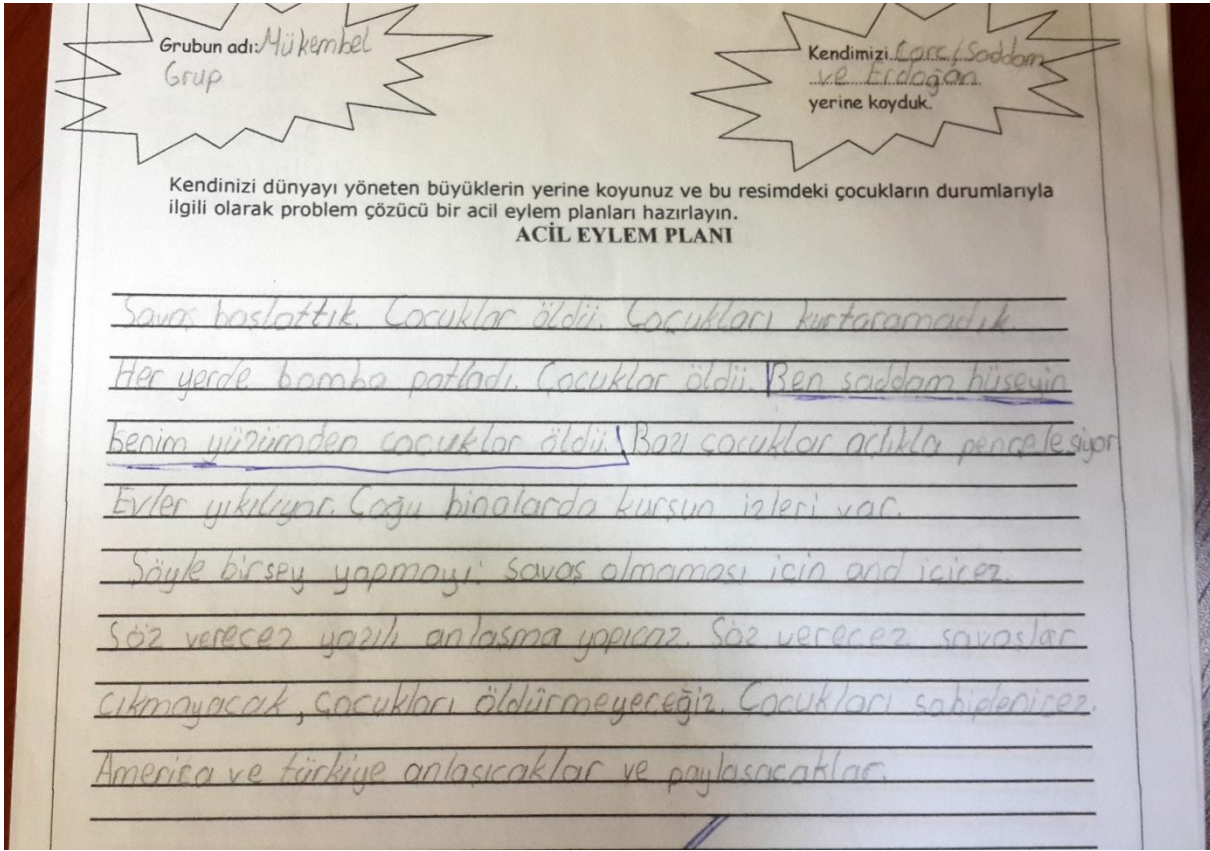 Grubun adı: Mükembel
Grup
Kendimizi Corc, Saddam
ve Erdoğan
yerine koyduk.
Kendinizi dünyayı yöneten büyüklerin yerine koyunuz ve bu resimdeki çocukların durumlarıyla
ilgili olarak problem çözücü bir acil eylem planları hazırlayın.
ACİL EYLEM PLANI
Savaş başlattık. Çocuklar öldü. Çocukları kurtaramadık.
Her yerde bomba patladı. Çocuklar öldü. Ben saddam hüseyin
benim yüzümden çocuklar öldü. Bazı çocuklar açlıkla pençeleşiyor
Evler yıkılıyor. Çoğu binalarda kurşun izleri var.
Söyle birşey yapmayı: savaş olmaması için and içicez.
Söz verecez yazılı anlaşma yapıcaz. Söz verecez savaşlar
çıkmayacak, çocukları öldürmeyeceğiz. Çocukları sahiplenicez.
America ve türkiye anlaşıcaklar ve paylaşacaklar.